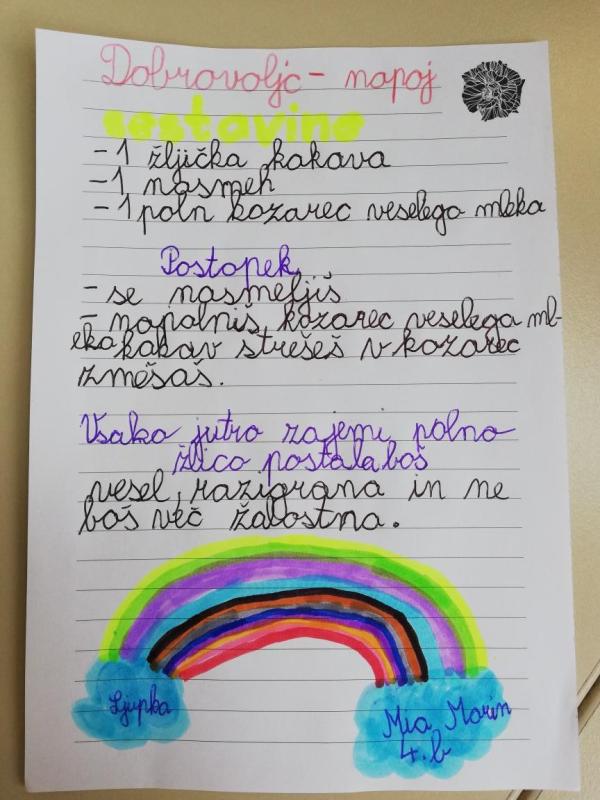 Dobrovoljc - napoj
sestavine
- 1 žljička kakava
- 1 nasmeh
- 1 poln kozarec veselega mleka
Postopek
- se nasmejiš
- napolniš kozarec veselega ml-
eka kakav strešeš v kozarec
zmešaš.
Vsako jutro zajemi polno
žlico postala boš
vesel, razigrana in ne
boš več žalostna.
Ljupka
Mia Marin
4.b